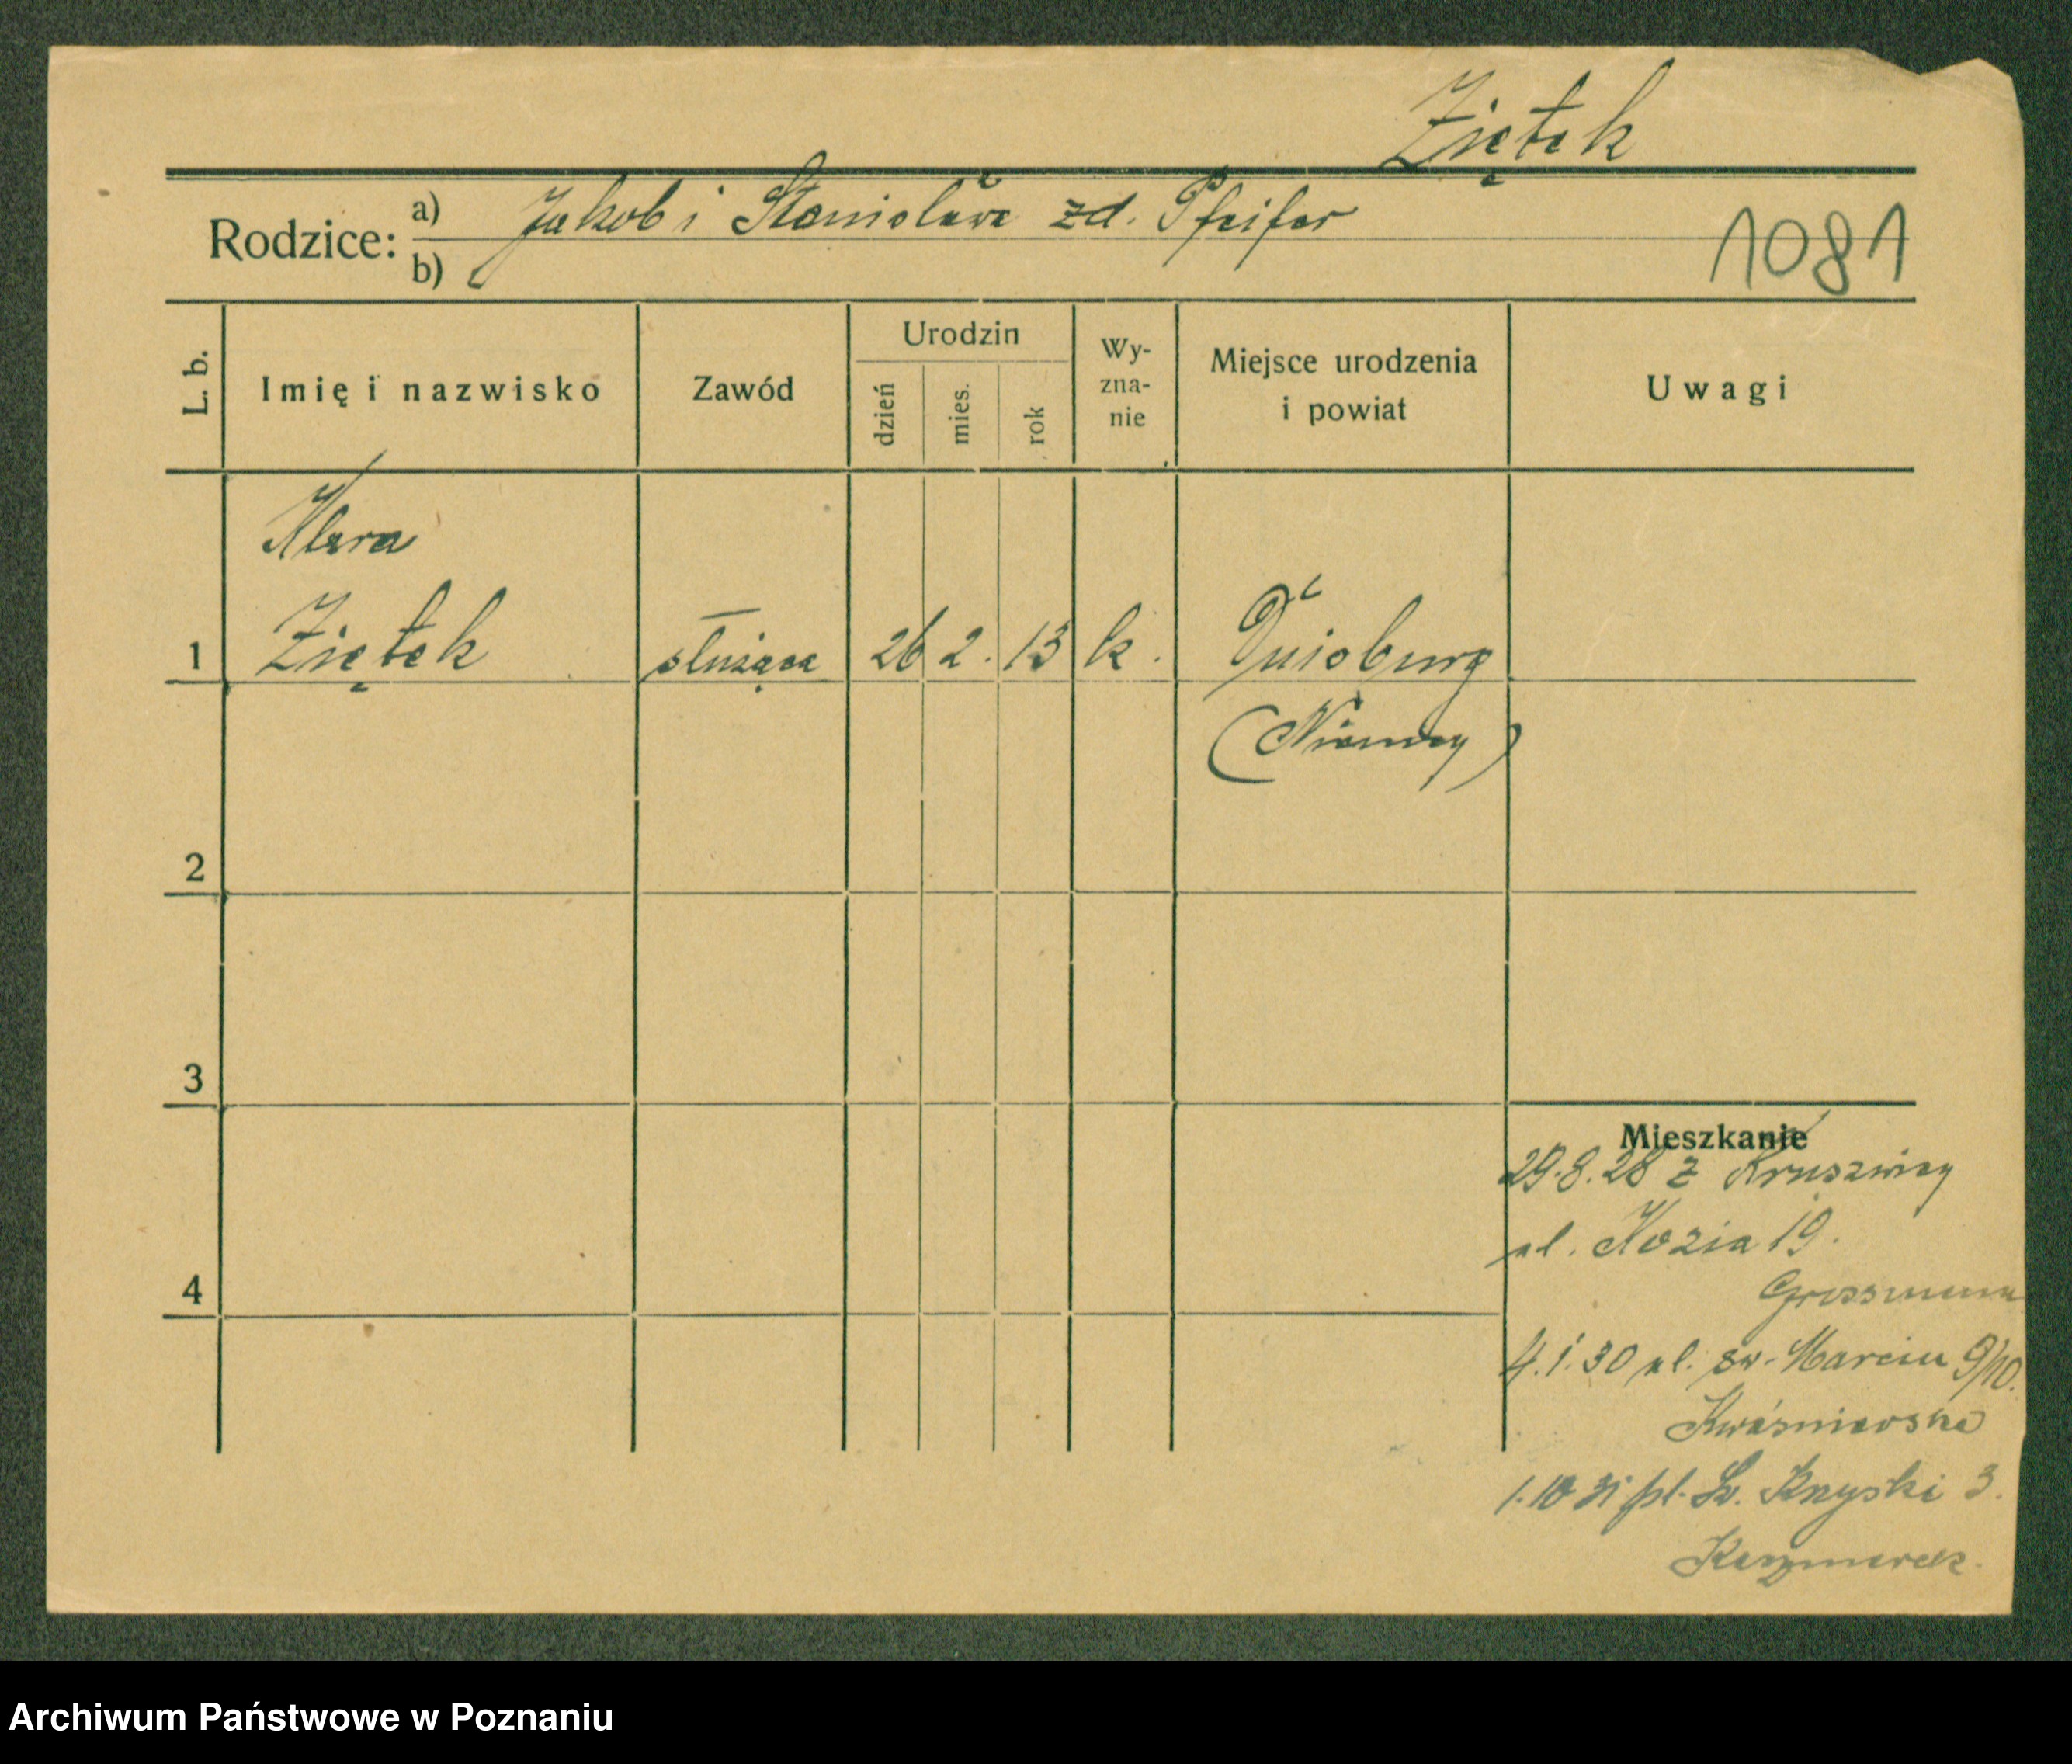 Ziętek
Rodzice: a) Jakob i Stanisława zd. Pfeifer
b)
1081
L. b.
Imię i nazwisko
Zawód
Urodzin
dzień
mies.
rok
Wy-
zna-
nie
Miejsce urodzenia
i powiat
Uwagi
Klara
1 Ziętek służąca 26 2. 13 k. Duisburg
(Niemcy)
2
3
4
Mieszkanie
29.8.28 z Kruszwicy
ul. Kozia 19.
Grossmann
4.1.30 ul. św. Marcin 9/10.
Kwaśniewska
1.10 31 pl. 3.
Kaczmarek.
Archiwum Państwowe w Poznaniu